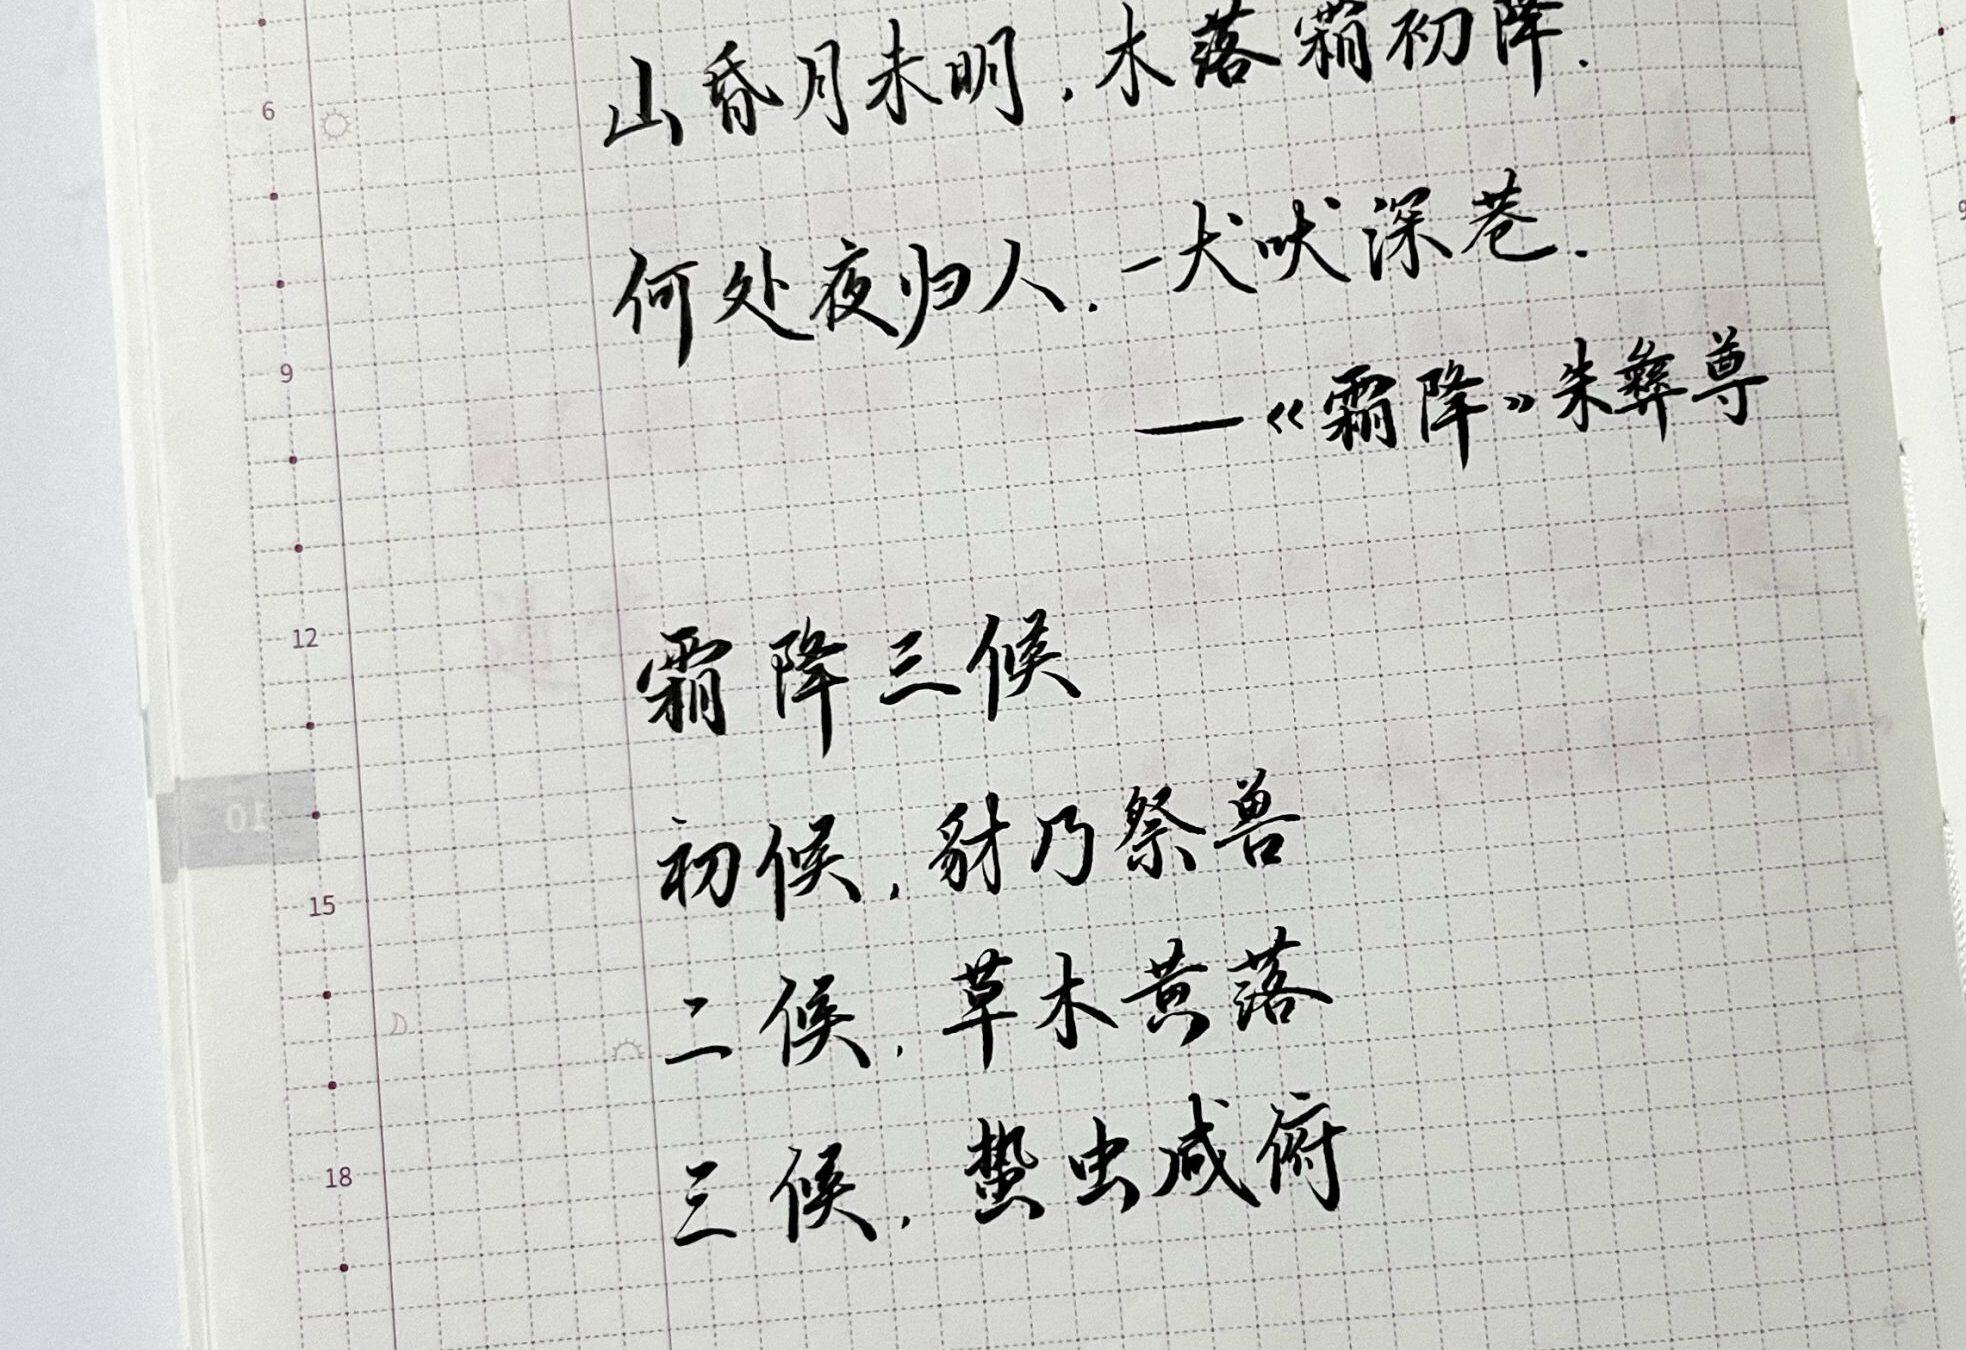 山昏月未明，木落霜初降.
何处夜归人.一犬吠深巷.
—《霜降》朱彝尊
霜降三候
初候，豺乃祭兽
二候，草木黄落
三候，蛰虫咸俯
6
9
12
10
15
18